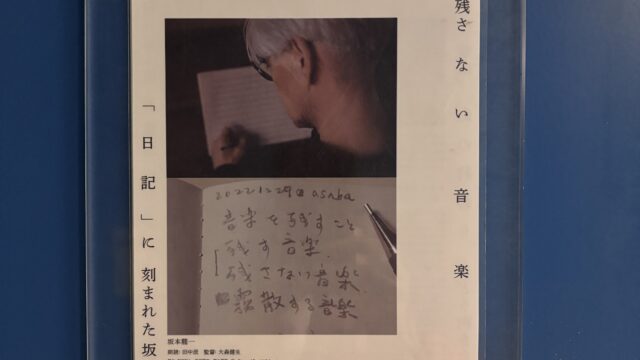 残さない音楽
「日記」に刻まれた坂
20221229 asaba
音楽を残すこと
残す音楽.
残さない音楽.
霧散する音楽
坂本龍一
朗読: 田中泯 監督: 大森健生